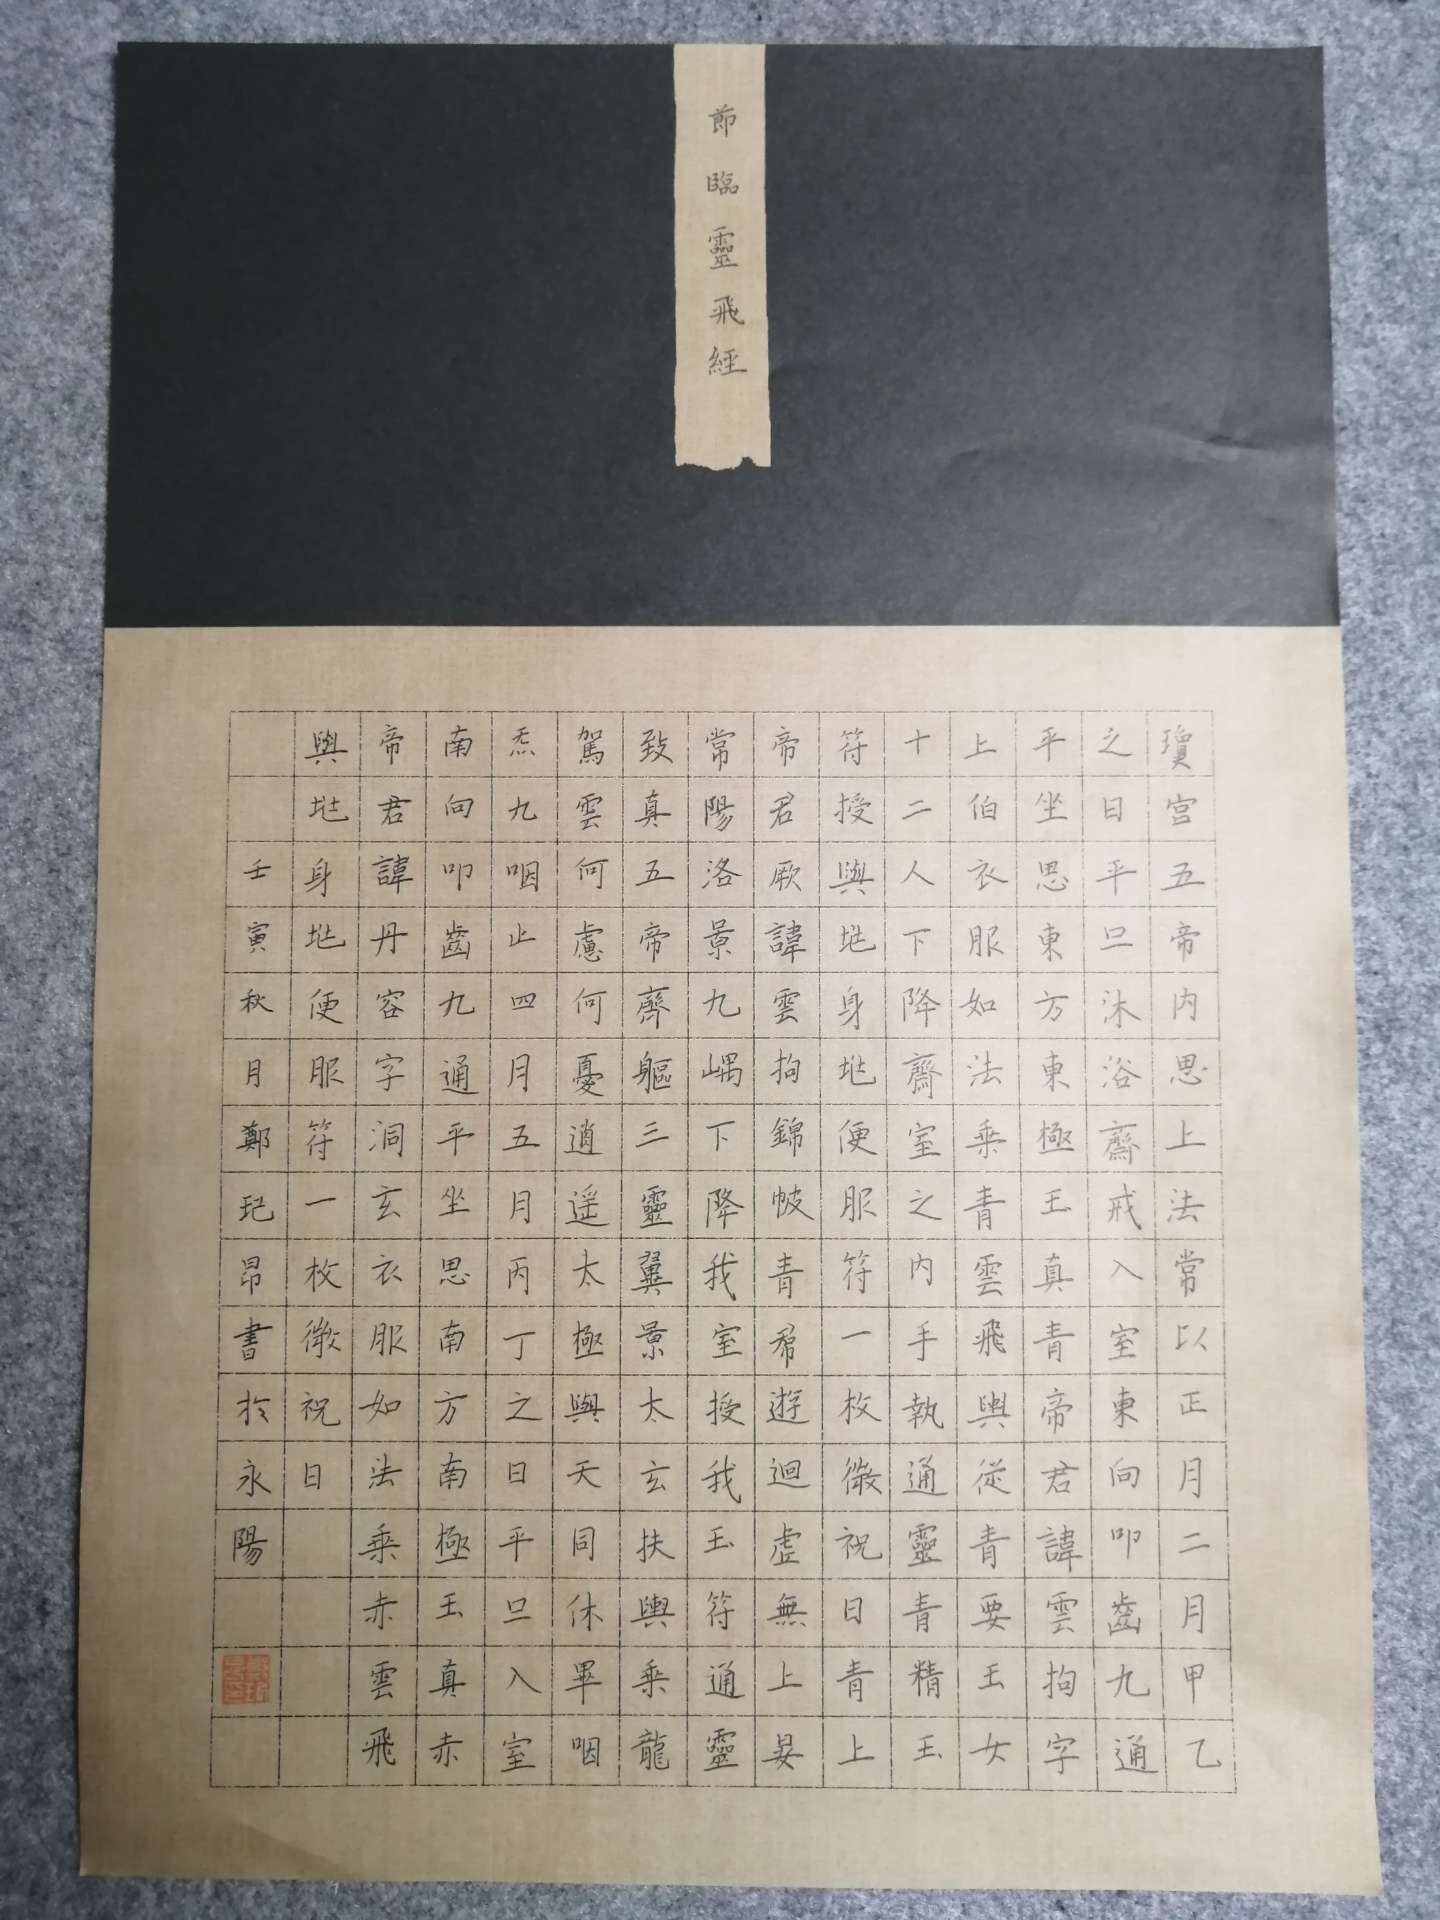 節臨靈飛經
瓊宮五帝內思上法常以正月二月甲乙
之日平旦沐浴齋戒入室東向叩齒九通
平坐思東方東極玉真青帝君諱雲拘字
上伯衣服如法乘青雲飛輿從青要玉女
十二人下降齋室之內手執通靈青精玉
符授與兆身兆便服符一枚微祝曰青上
帝君厥諱雲拘錦帔青帬遊迴虛無上晏
常陽洛景九嵎下降我室授我玉符通靈
致真五帝齊軀三靈翼景太玄扶輿乘龍
駕雲何慮何憂逍遥太極與天同休畢咽
炁九咽止四月五月丙丁之日平旦入室
南向叩齒九通平坐思南方南極玉真赤
帝君諱丹容字洞玄衣服如法乘赤雲飛
與兆身兆便服符一枚微祝曰
壬寅秋月鄭玘昂書於永陽